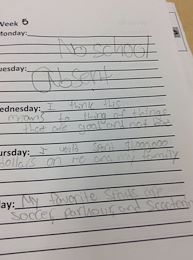 Week 5
Monday:
No school
uesday:
Absent
ednesday: I think this
means to thing of things
that are good and not bad
ursday: I wold spnt
dollars on me and my family
ay: My favorite are
soccer, parkour, and